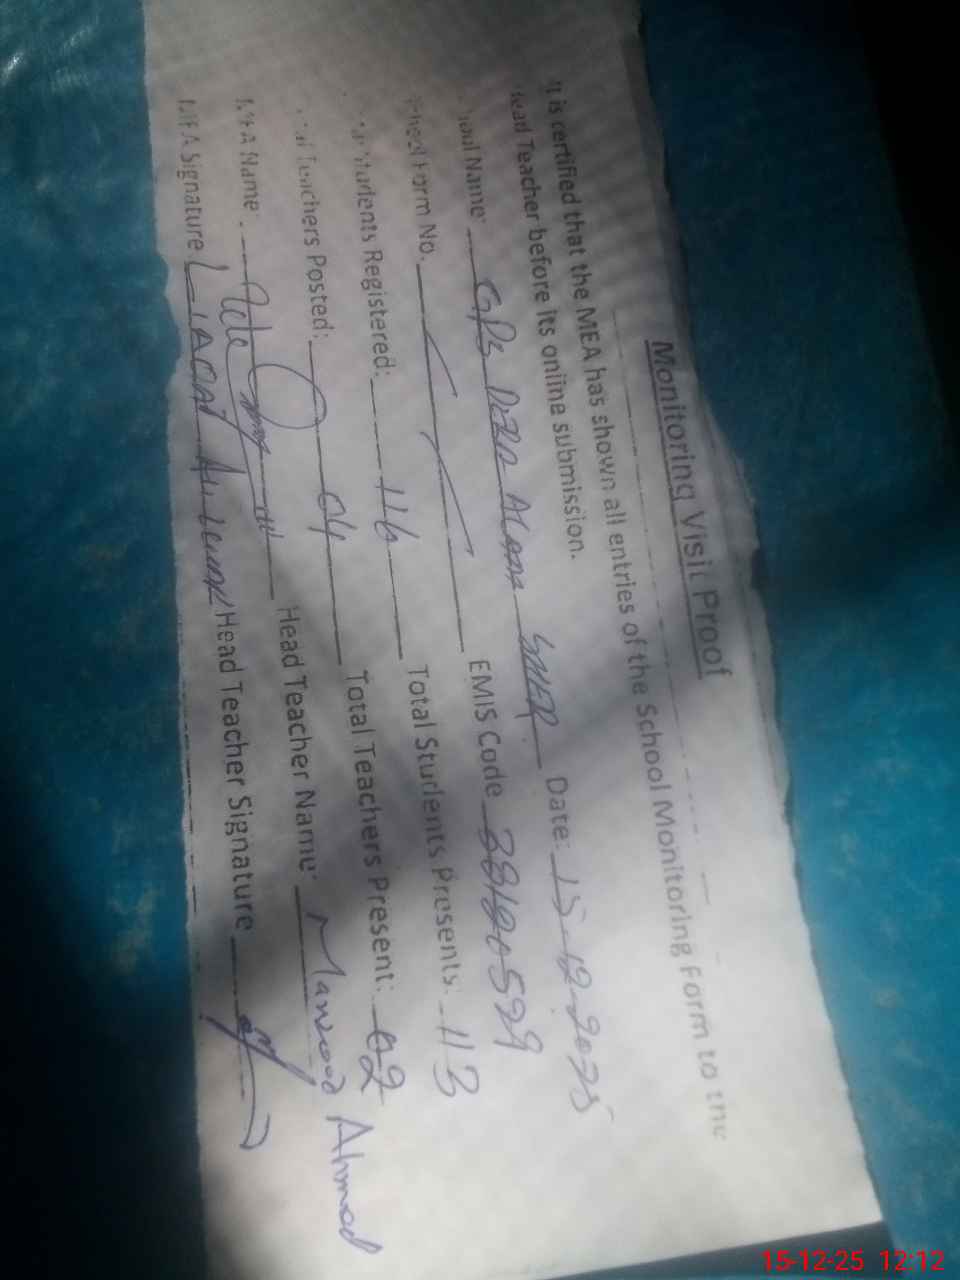 Monitoring Visit Proof
It is certified that the MEA has shown all entries of the School Monitoring Form to the
Head Teacher before its online submission.
School Name: GPS Date: 15-12-2025
School Form No. EMIS Code 38190599
Total Students Registered: 116 Total Students Presents: 113
Total Teachers Posted: 04 Total Teachers Present: 02
MEA Name: Head Teacher Name: Ahmed
MEA Signature LIAQAT Head Teacher Signature
15-12-25 12:12